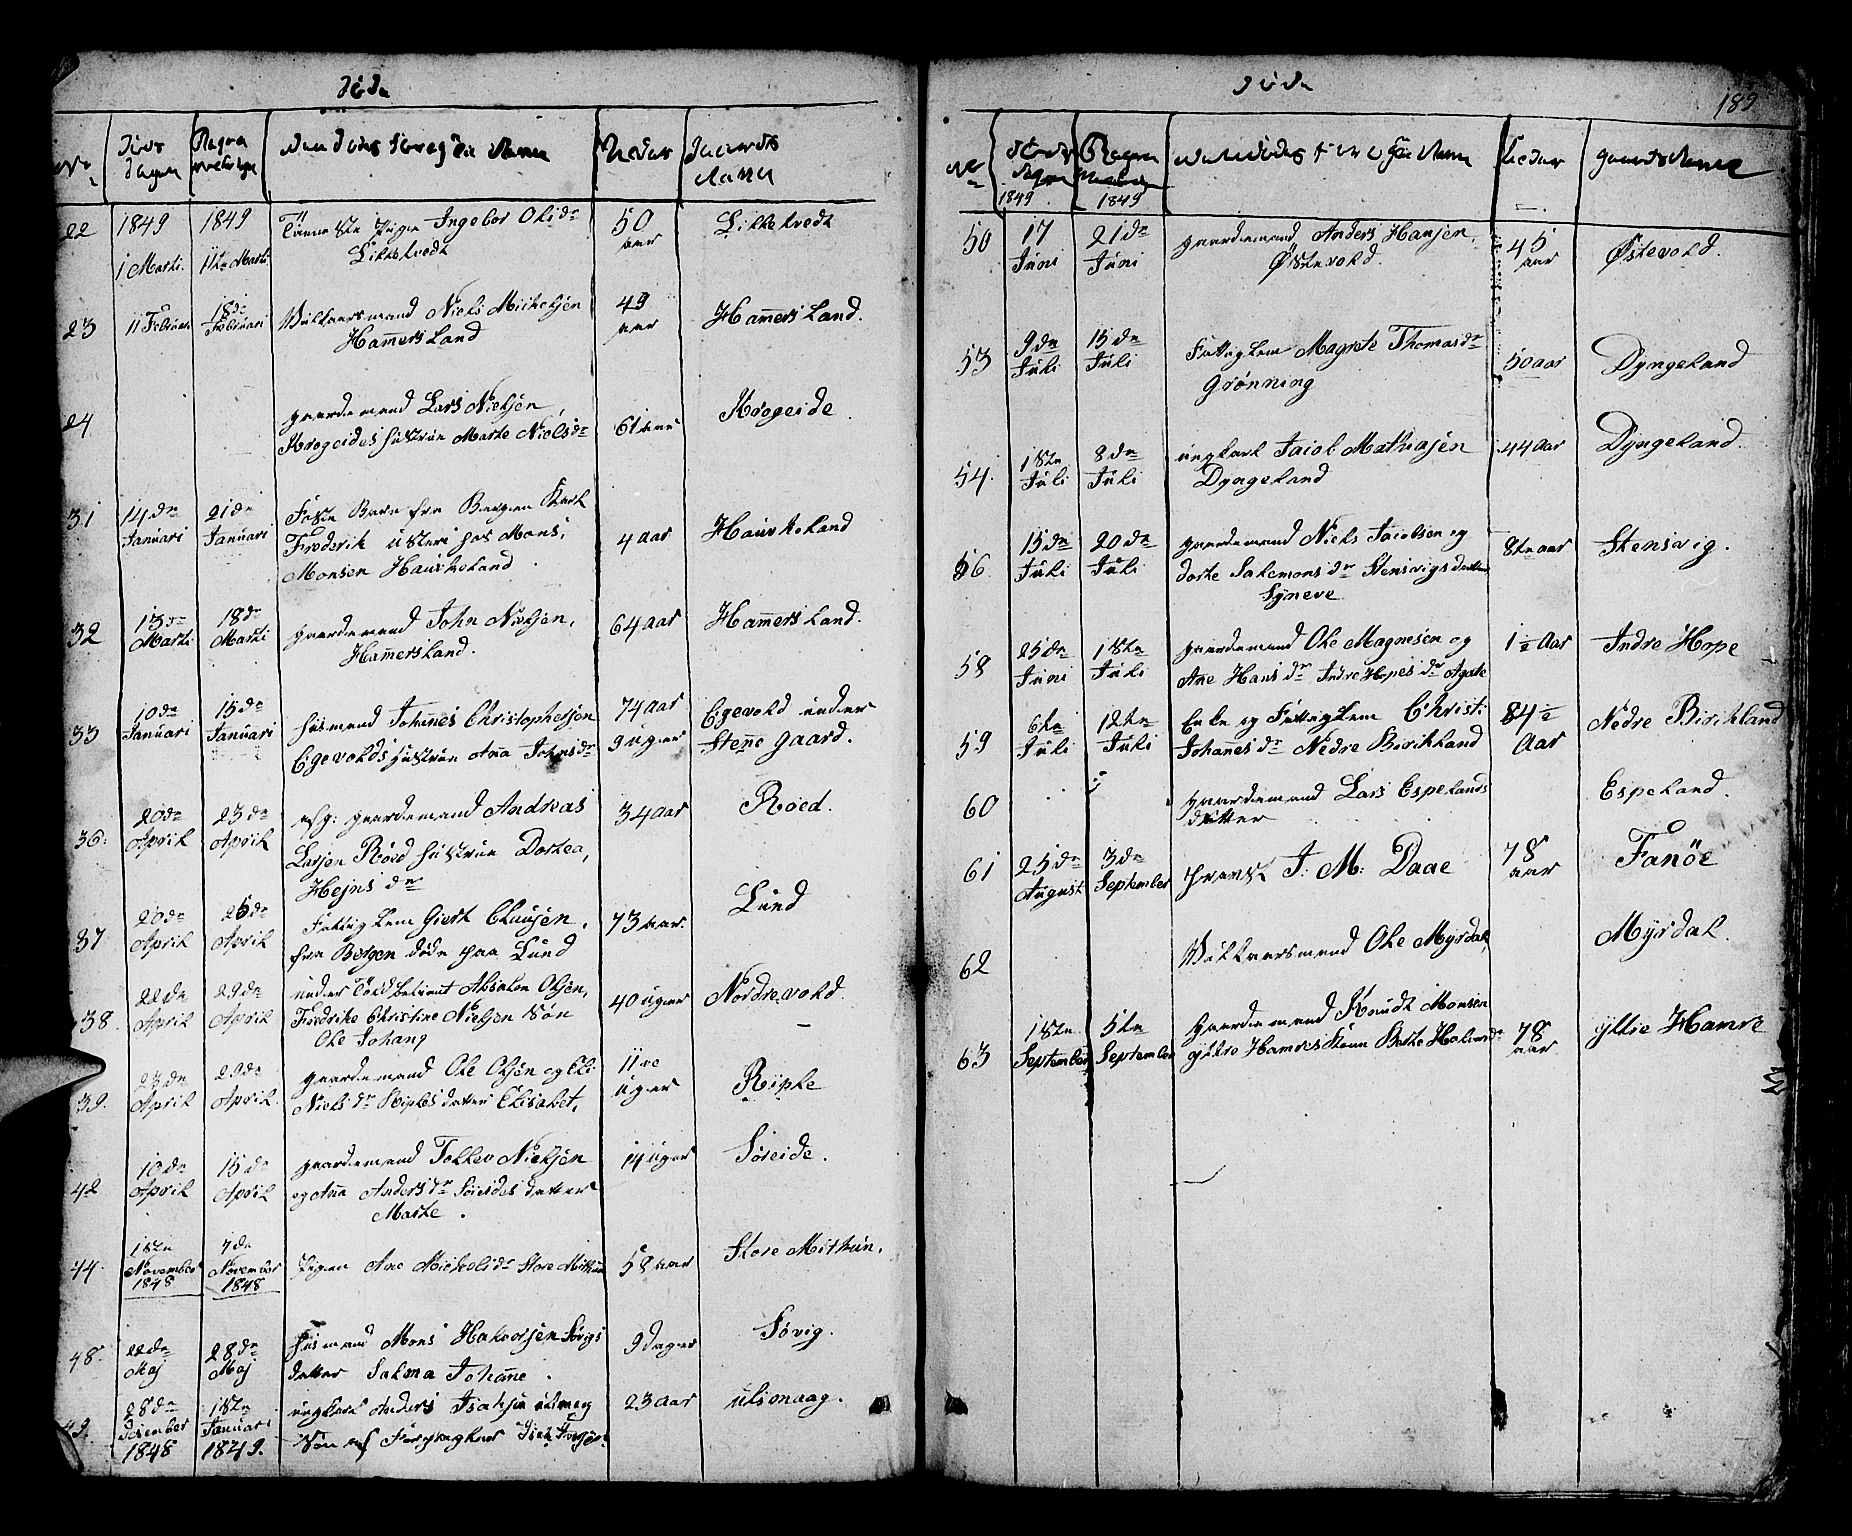 Døde
No
Døds
Dagen
Aldar
22
1849
1 Marti.
1849
11te Marti
Pigen Ingebor Olsdr
Likketvedt
50
aar
Likketvedt
23
11 Februari
18de
Februari
Niels Mickelsen
Hamersland
49
aar
Hamersland.
24
gaardemand Lars Nielsen
Krogeides hustrue Marte Nielsdr
61 aar
Krogeide
31
14de
Januari
21de
Januari
Foster Barn fra Bergen Karl
Frederik hos Mons
Monsen Haukeland
4 aar
Haukeland
32
13de
Marti
18de
Marti
gaardemand John Nielsen,
Hamersland.
64 aar
Hamersland.
33
10de
Januari
15de
Januari
Husmand Johanes Christophersen
Eigevolds hustrue Ana Johansdr
74 aar
9 uger
Eigevold under
Stene gaard.
36
20de
April
23de
April
gaardemand Andreas
Larsen Røed hustrue Dortea,
Hejnsdr
34 aar
Røed.
37
20de
April
26de
April
Fattiglem Giert Clausen,
fra Bergen døde paa Lund
73 aar.
Lund
38
22de
April
29de
April
under Toldbetient Absalon Olsen,
Fredrike Christine Nielsen Søn
Ole Johang
40 uger
Nordrevold.
39.
23de
April
29de
April
gaardemand Ole Olsen og Eli
Nielsdr Riples datter Elisabet,
11ve
uger
Riple
42
10de
April
15de
April
gaardemand Tollev Nielsen
og Ana Andersdr Søreides datter
Marte.
14 uger
Søreide.
44
18te
November
1848
7de
November
1848
Pigen Ane Michelsdr Store Mithun
58 aar
Store Mithun.
48.
22de
Maj
28de
Maj
Husmand Mons Halvorsen Søvigs
datter Salma Johane.
9 dager
Søvig.
49.
28de
Desember
1848
18te
Januari
1849.
ungkarl Anders Isaksen
Søn af
23 aar
ulsmaag.
Døde
189
No
1849
1849
Aldar
gaards Navne
50
17
Juni
21de
Juni
gaardemand Anders Hansen,
Østevold.
45
aar
Østevold.
53
9de
Juli
15de
Juli
Fattiglem Magrete Thomasdr
Grønning
50 aar
Dyngeland
54.
18te
Juli
8de
Juli
ungkarl Jacob Mathiasen
Dyngeland
44 aar
Dyngeland.
56.
15de
Juli
20de
Juli
gaardemand Niels Jacobsen og
Dorte Salemonsdr Stensvigs datter
Syneve
8te aar
Stensvig.
58
25de
Juni
18te
Juli
gaardemand Ole Magnesen og
Ane Hansdr Indre Hopes dr Agate
1½ Aar
Indre Hope
59
6te
Juli
12te
Juli
Enke og Fattiglem Christi
Johanesdr Nedre Birkland
84½
Aar
Nedre Birkland
60
gaardemand Lars Espelands
datter
Espeland.
61
25de
August
3de
September
J: M: Daae
78
aar
Fanöe
62
Ole Myrdal
Myrdal.
63
18te
September
5te
September
gaardemand Knudt Monsen
yttre Hamres Kone
78
aar
yttre Hamre